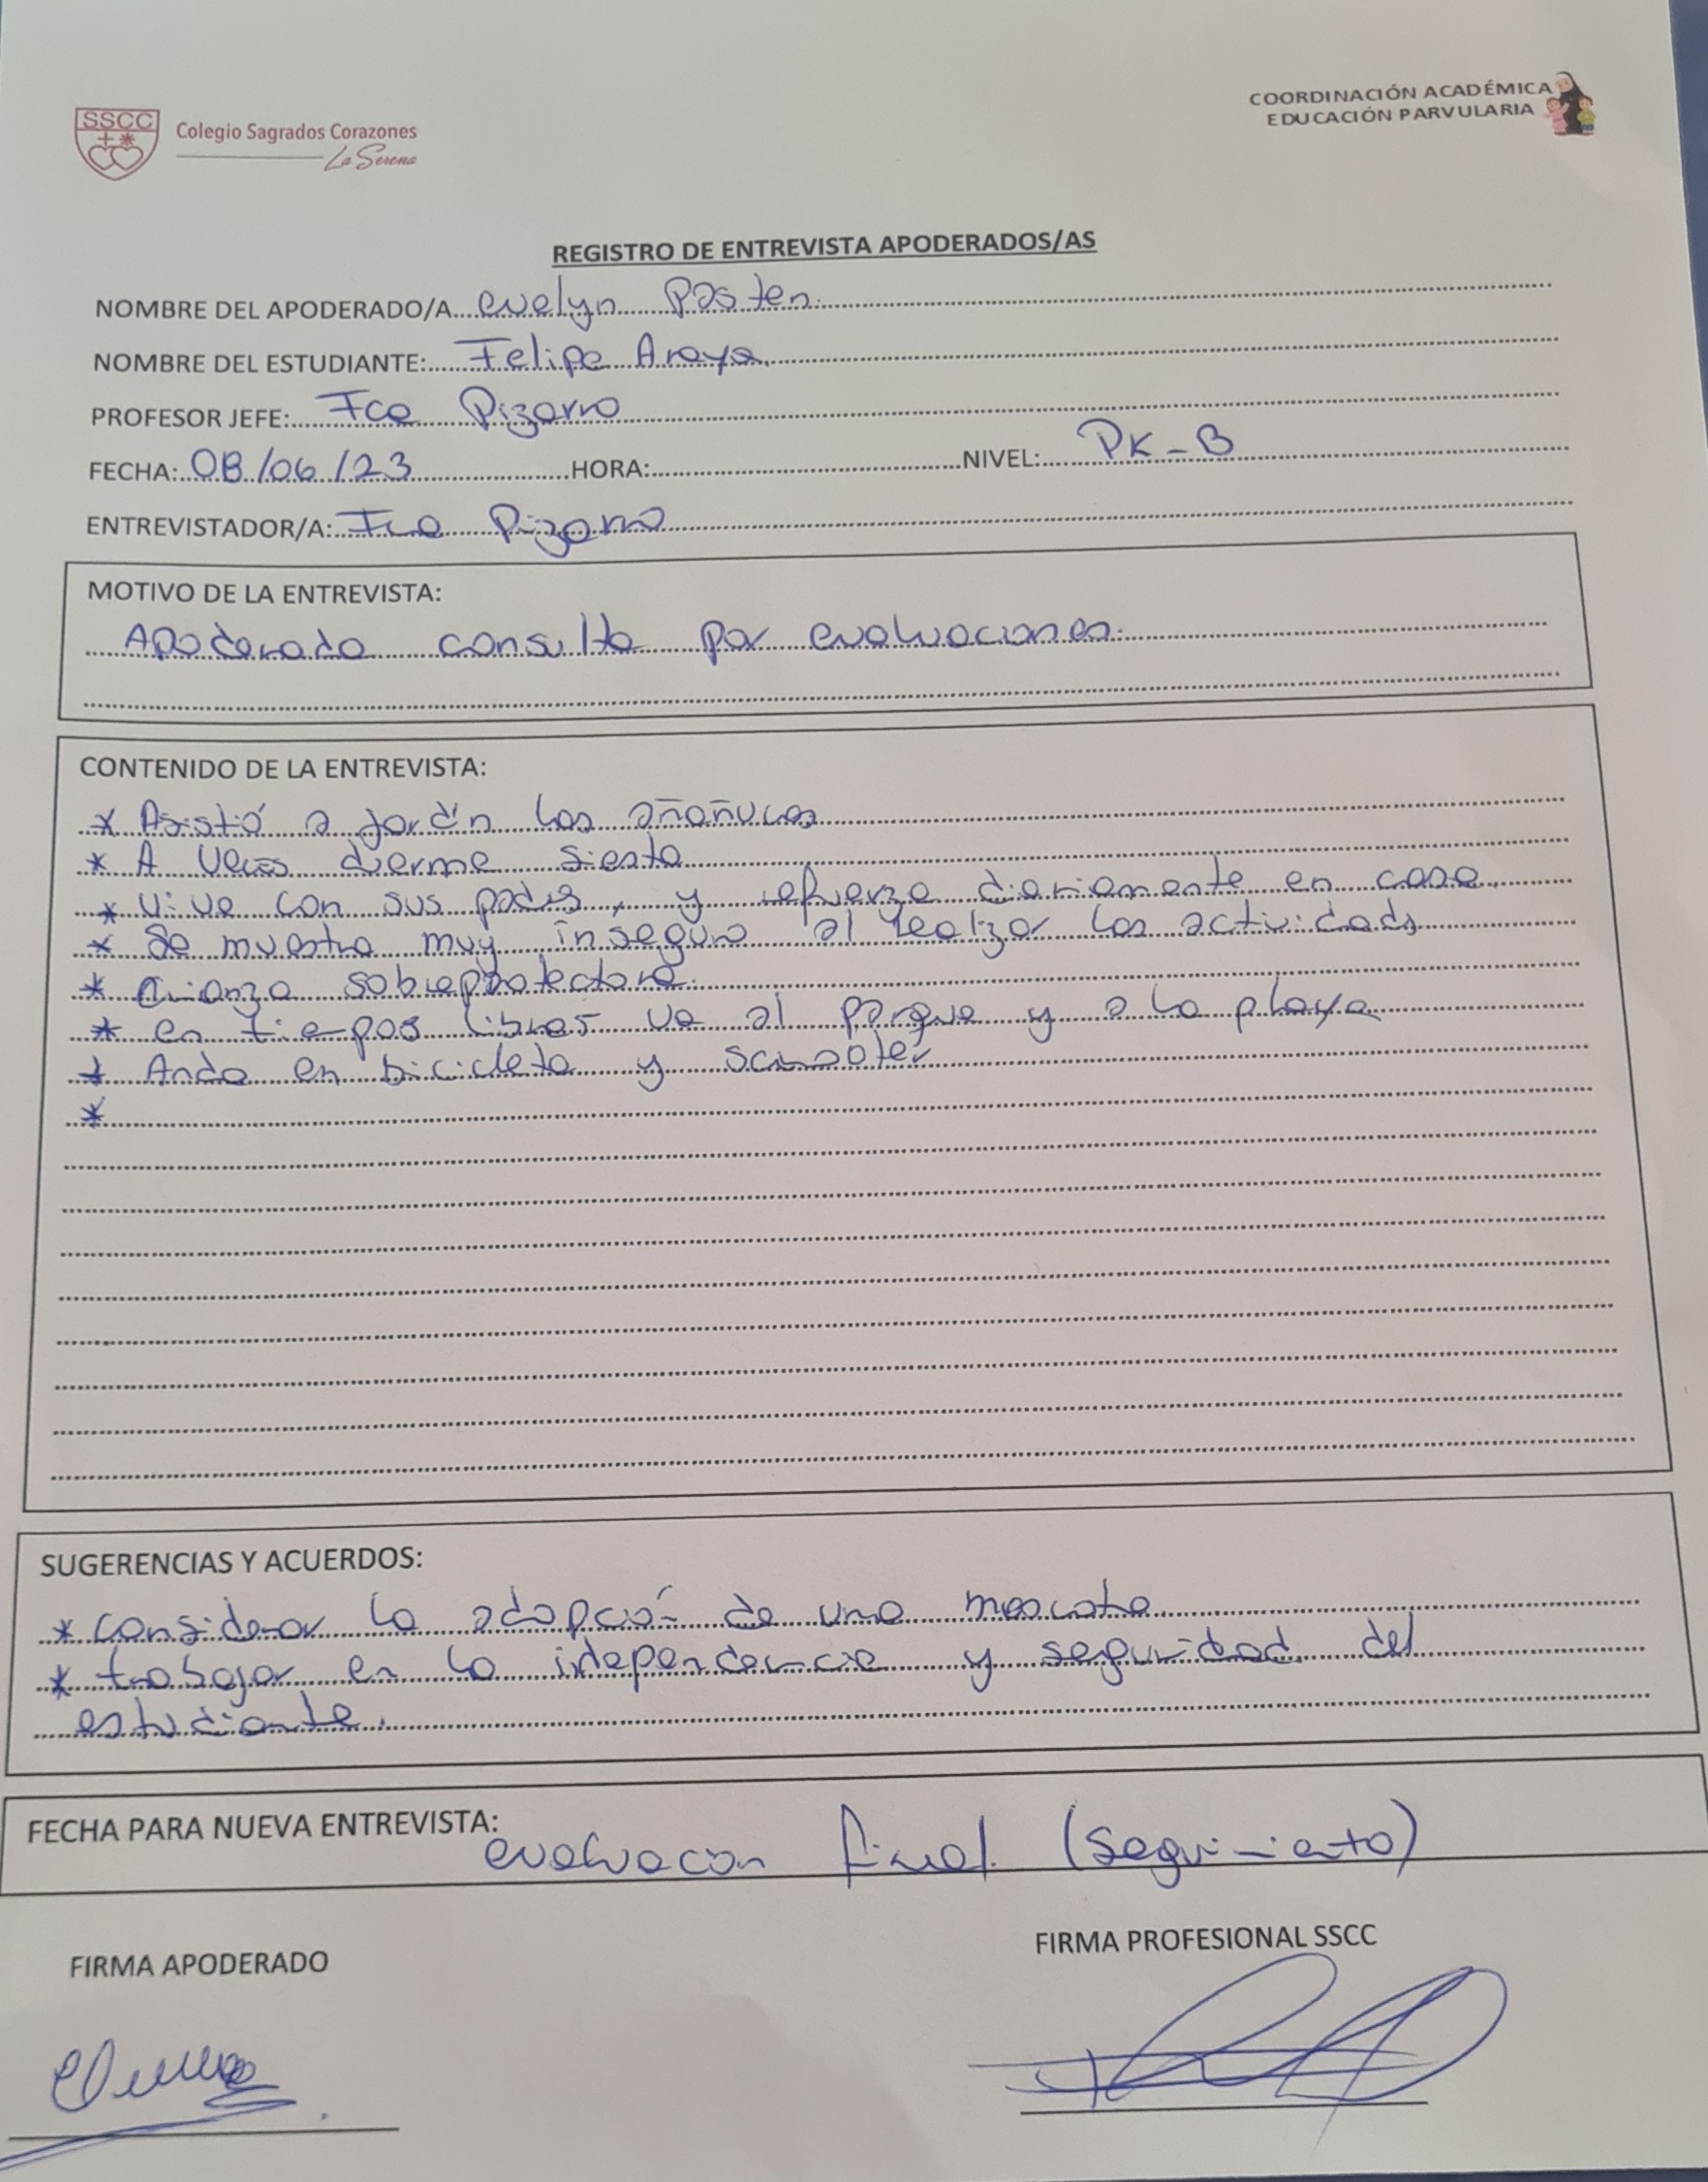 SSCC
Colegio Sagrados Corazones
La Serena
COORDINACIÓN ACADÉMICA
EDUCACIÓN PARVULARIA
REGISTRO DE ENTREVISTA APODERADOS/AS
NOMBRE DEL APODERADO/A evelyn Pasten.
NOMBRE DEL ESTUDIANTE: Felipe Araya.
PROFESOR JEFE: Fca Pizarro
FECHA: 08/06/23 HORA: NIVEL: PK-B
ENTREVISTADOR/A: Fca Pizarro
MOTIVO DE LA ENTREVISTA:
Apoderada consulta por evaluaciones.
CONTENIDO DE LA ENTREVISTA:
* Asistió a jardín las añañucas
* A veces duerme siesta
* Vive con sus padres, y refuerza diariamente en casa.
* Se muestra muy inseguro al realizar las actividads
* Crianza sobreprotectora.
* en tiepos libres va al parque y a la playa
* Anda en bicicleta y scooter
*
SUGERENCIAS Y ACUERDOS:
* Considerar la adopció de una mascota.
* trabajar en la independencia y seguridad del
estudiante.
FECHA PARA NUEVA ENTREVISTA: evaluacion final. (Seguimiento)
FIRMA APODERADO
FIRMA PROFESIONAL SSCC